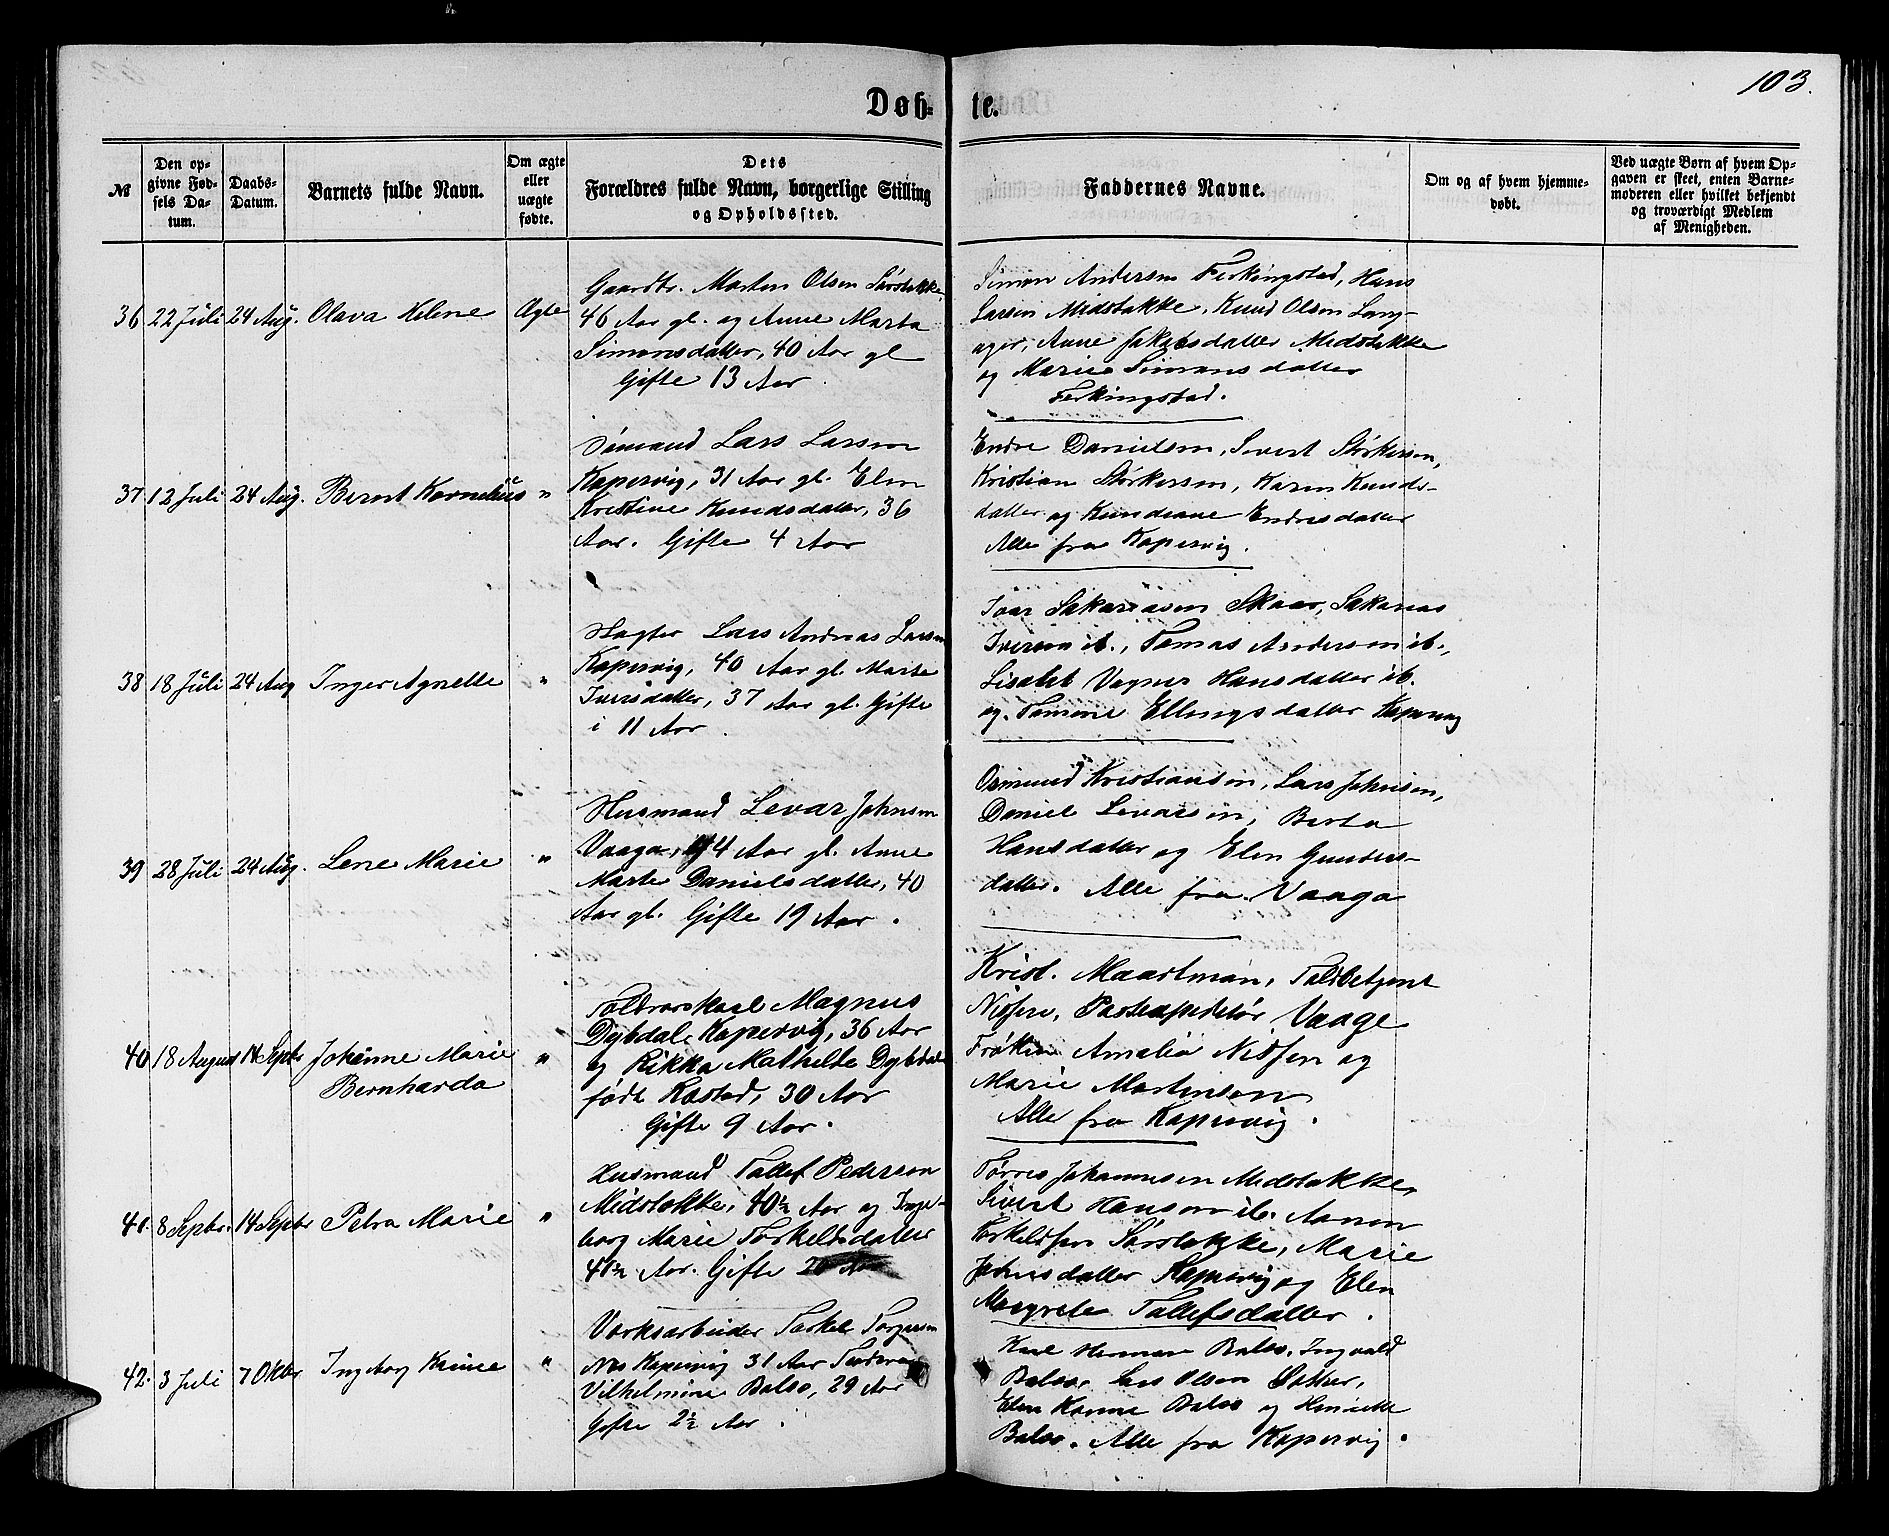 103.
Døb- te.
№
Den op-
givne Fød-
sels Da-
tum.
Daabs-
Datum.
Barnets fulde Navn.
Om ægte
eller
uægte
fødte.
Dets
Forældres fulde Navn, borgerlige Stilling
og Opholdssted.
Faddernes Navne.
Om og af hvem hjemme-
døbt.
Ved uægte Børn af hvem Op-
gaven er skeet, enten Barne-
moderen eller hvilket bekjendt
og troværdigt Medlem
af Menigheden.
36 22 Juli 24 Aug. Olava Helene Ægte
Gaardbr. Morten Olsen Sørstokke,
46 Aar gl. og Anne Marta
Simonsdatter, 40 Aar gl
Gifte 13 Aar.
Simon Andersen Ferkingstad, Hans
Larsen Midstokke, Knud Olsen Lang-
ager, Anne Jakobsdatter Midstokke
og Marie Simonsdatter
Ferkingstad.
37 12 Juli 24 Aug. Bernt Kornelius "
Sømand Lars Larsen
Kopervig, 31 Aar gl. Elen
Kristine Knudsdatter, 36
Aar. Gifte 4 Aar
Endre Danielsen, Sivert Størkersen,
Kristian Størkersen, Karen Knuds-
datter og Knudiane Endresdatter
Alle fra Kopervig.
38 18 Juli 24 Aug Inger Agnette "
Lars Andreas Larsen
Kopervig, 40 Aar gl. Marta
Iversdatter, 37 Aar gl. Gifte
i 11 Aar.
Ivar Sakariasen Skaar, Sakarias
Iversen ib., Tomas Andersen ib.,
Lisabet Hansdatter ib.
og Tomine Ellingsdatter Kopervig
39 28 Juli 24 Aug. Lene Marie "
Husmand Levar Johnsen
Vaaga, 44 Aar gl. Anne
Marta Danielsdatter, 40
Aar gl. Gifte 19 Aar.
Osmund Kristiansen, Lars Johnsen,
Daniel Levarsen, Berta
Hansdatter og Elen Gunders-
datter. Alle fra Vaaga
40 18 August 14 Septbr Johanne Marie
Bernharda "
Toldroerskarl Magnus
Dybdal, Kopervig, 36 Aar
og Rikka Mathilte Dybdal
født Rostad, 30 Aar
Gifte 9 Aar.
Krist. Maartman, Toldbetjent
Nissen, Postexpeditør Vaage
Frøken Amalia Nissen og
Marie Mortensen
Alle fra Kopervig.
41. 8 Septbr. 14 Septbr Petra Marie "
Husmand Tollef Pedersen
Midstokke, 40½ Aar og Inge-
borg Marie Torkelsdatter
41½ Aar. Gifte 20 Aar
Tørres Johannesen Midstokke,
Sivert Hansen ib. Aanen
Torkeldsen Sørstokke, Marie
Johnsdatter Kopervig og Elen
Margrete Tollefsdatter.
42. 3 Juli 7 Oktbr Ingeborg Krine "
Værksarbeider Torkel Torgersen
Næs Kopervig 31 Aar
Vilhelmine Balso, 29 Aar
Gifte 2½ Aar.
Karl Herman Balso, Ingvald
Balso, Lars Olsen
Elen Karine Balso og Henriette
Balso. Alle fra Kopervig.